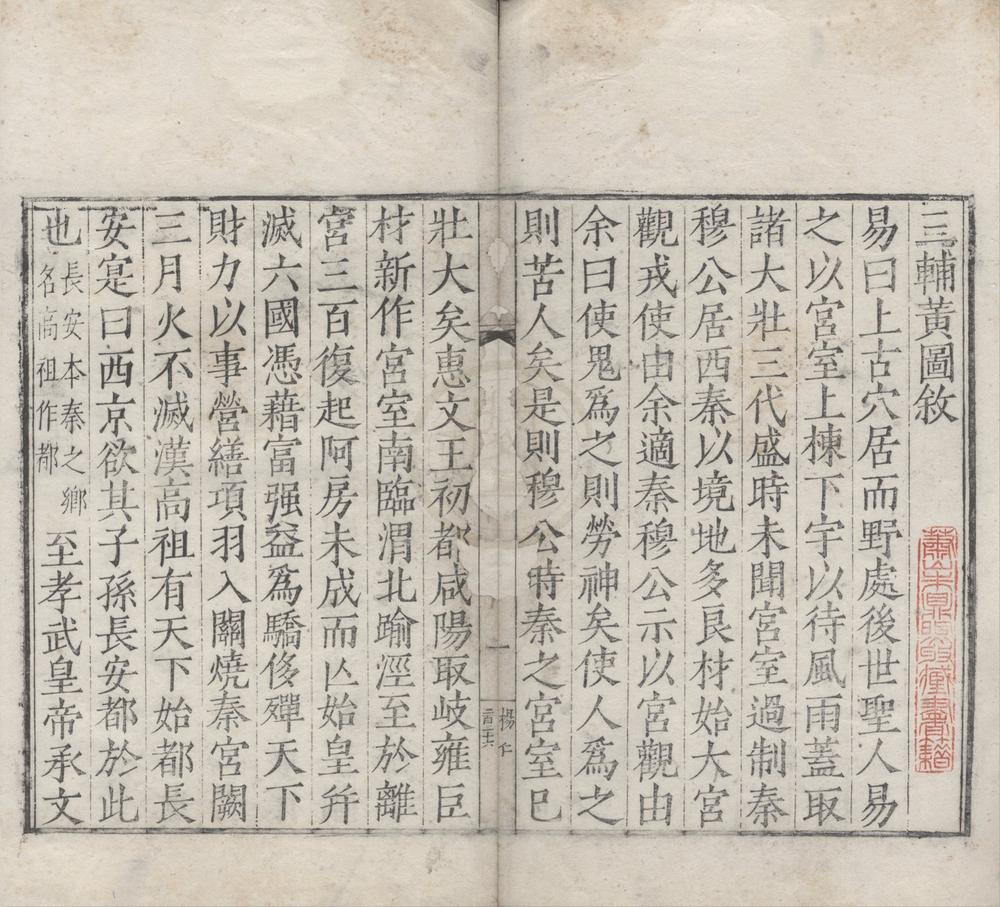 三輔黃圖敘
易曰上古穴居而野處後世聖人易
之以宮室上棟下宇以待風雨蓋取
諸大壯三代盛時未聞宮室過制秦
穆公居西秦以境地多良材始大宮
觀戎使由余適秦穆公示以宮觀由
余曰使鬼爲之則勞神矣使人爲之
則苦人矣是則穆公時秦之宮室已
一
楊仁
壯大矣惠文王初都咸陽取岐雍巨
材新作宮室南臨渭北踰涇至於離
宮三百復起阿房未成而亾始皇幷
滅六國憑藉富强益爲驕侈殫天下
財力以事營繕項羽入關燒秦宮闕
三月火不滅漢高祖有天下始都長
安寔曰西京欲其子孫長安都於此
也長安本秦之鄉名高祖作都至孝武皇帝承文